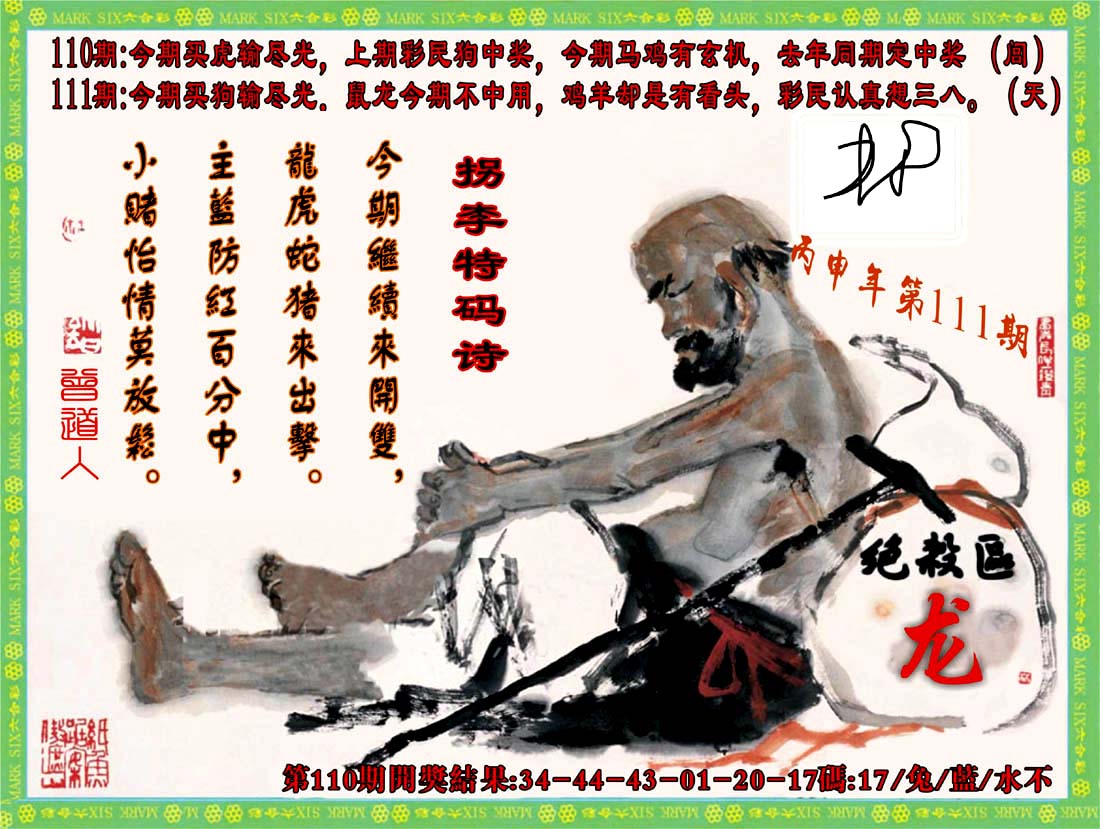 MARK SIX六合彩
110期:今期买虎输尽光，上期彩民狗中奖，今期马鸡有玄机，去年同期定中奖 （阎）
111期:今期买狗输尽光．鼠龙今期不中用，鸡羊却是有看头，彩民认真想三八。（天）
丙申年第111期
拐李特码诗
今期繼續來開雙，
龍虎蛇猪來出擊。
主藍防紅百分中，
小賭怡情莫放鬆。
曾道人
绝殺區
龙
第110期開獎結果:34-44-43-01-20-17碼:17/兔/藍/水不